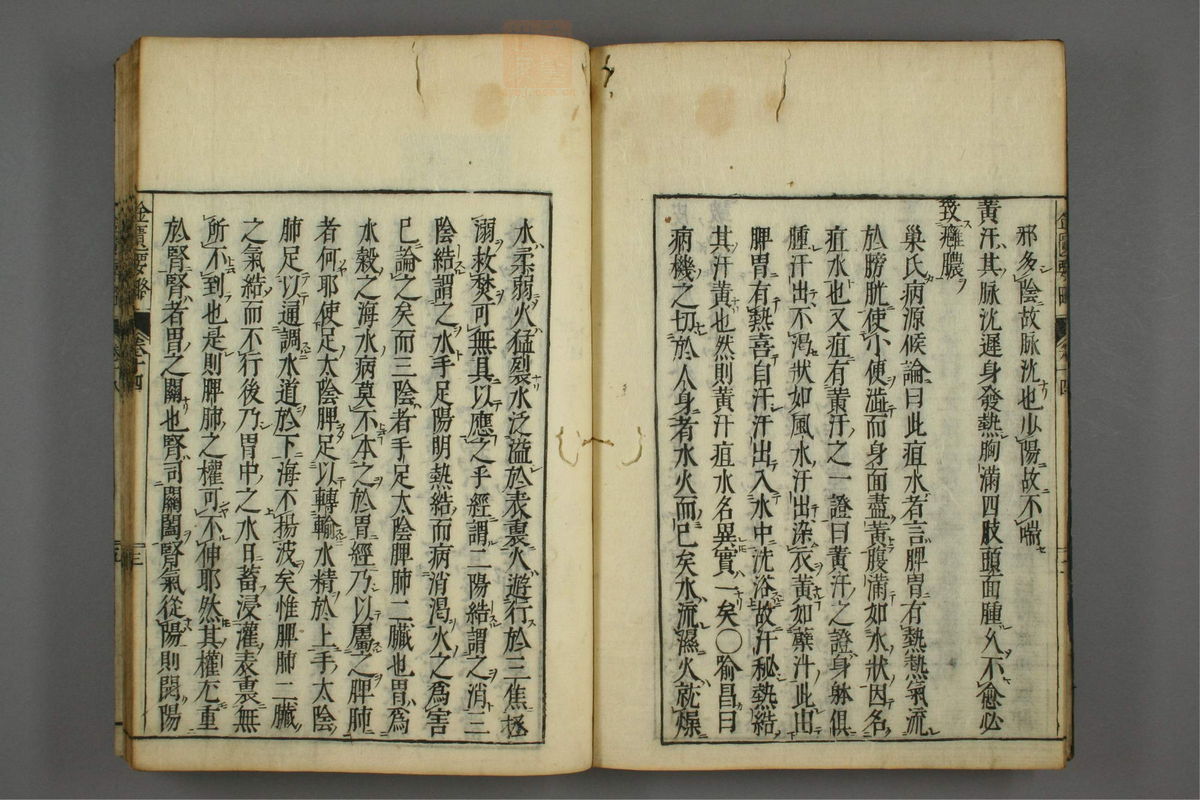 邪多陰故脉沈也少陽故不喘
黃汗其脉沈遲身發熱胸滿四肢頭面腫久不愈必
致癰膿
巢氏病源候論曰此疸水者言脾胃有熱熱氣流
於膀胱使小便澁而身面盡黃腹滿如水狀因名
疸水也又疸有黃汗之一證曰黃汗之證身躰俱
腫汗出不渴狀如風水汗出染衣黃如蘗汁此由
脾胃有熱喜自汗汗出入水中沈浴故汗秘熱結
其汗黃也然則黃汗疸水名異實一矣〇喻昌曰
病機之切於人身者水火而已矣水流濕火就燥
水柔弱火猛裂水泛溢於表裏火遊行於三焦拯
溺救焚可無具以應之乎經謂二陽結謂之消三
陰結謂之水手足陽明熱結而病消渴火之爲害
已論之矣而三陰者手足太陰脾肺二臟也胃爲
水穀之海水病莫不本之於胃經乃以屬之脾肺
者何耶使足太陰脾足以轉輸水精於上手太陰
肺足以通調水道於下海不揚波矣惟脾肺二臟
之氣結而不行後乃胃中之水日蓄浸灌表裏無
所不到也是則脾肺之權可不伸耶然其權尤重
於腎腎者胃之關也腎司關闔腎氣從陽則開陽